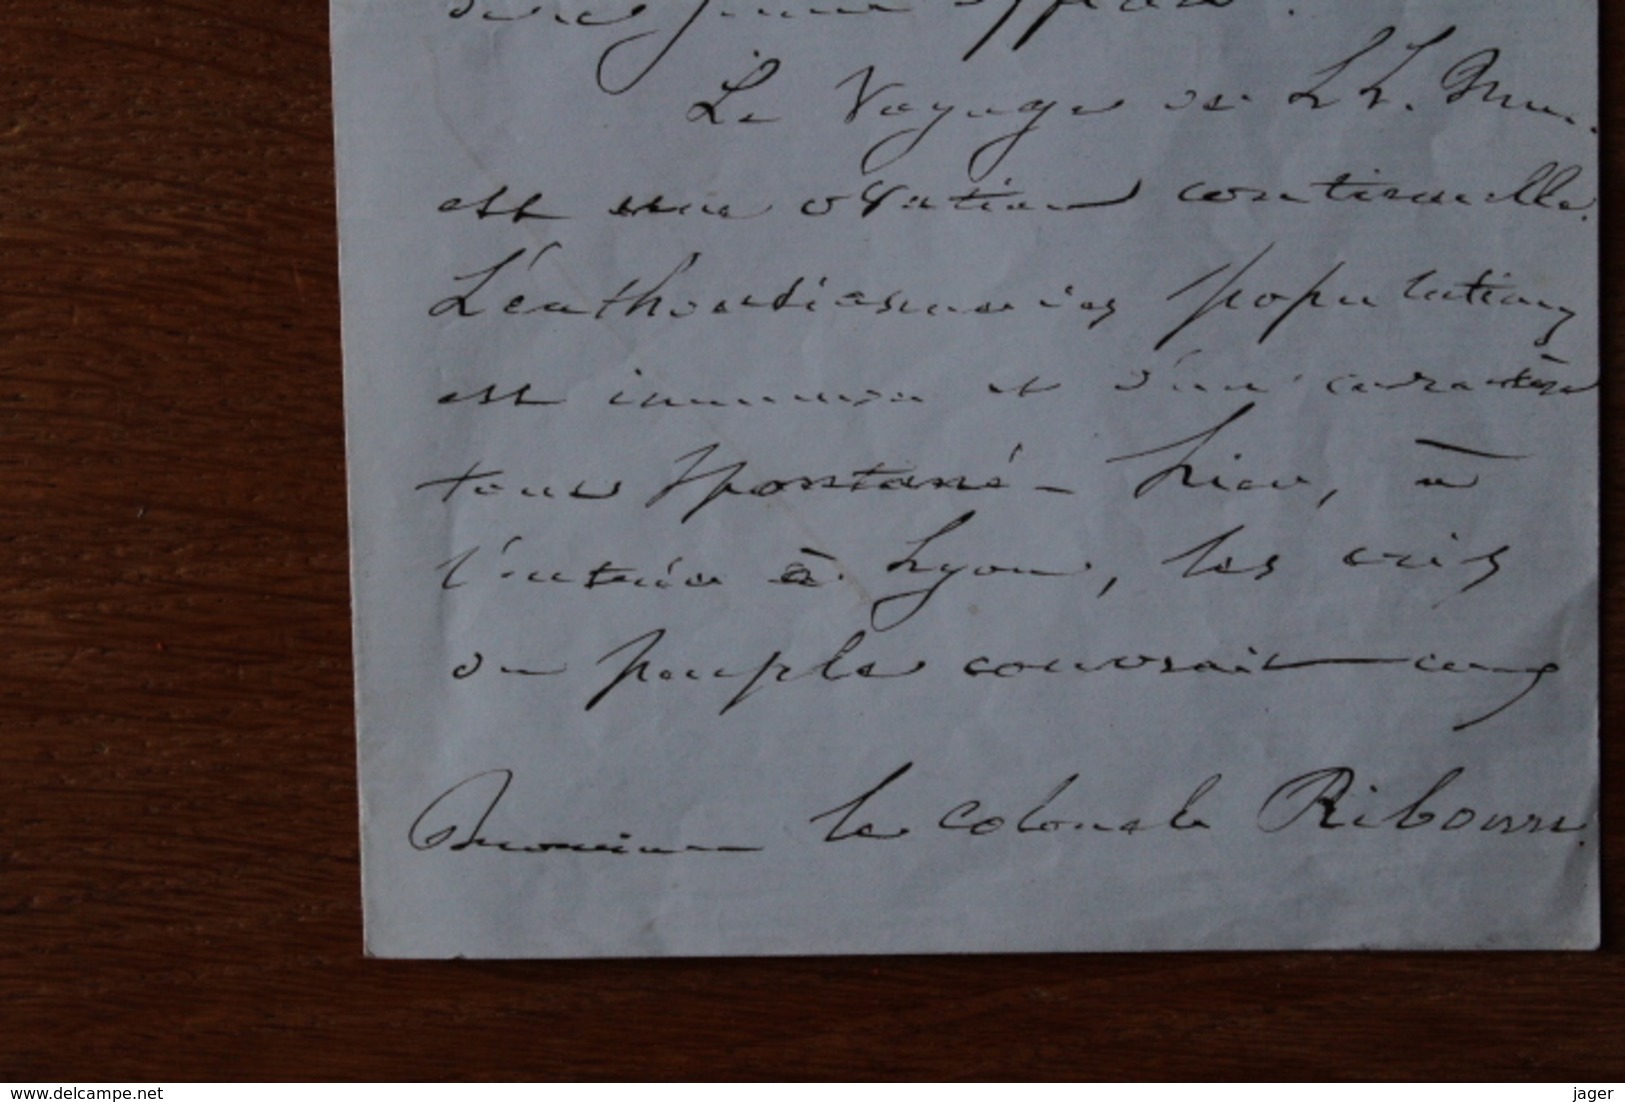 Le Voyage de LL. Mm.
est une ovation continuelle.
L'enthousiasme des populations
est immense et d'un caractère
tout spontané - hier, à
l'entrée à Lyon, les cris
du peuple couvrait
Monsieur le colonel Ribourt.
delcampe.net
jager